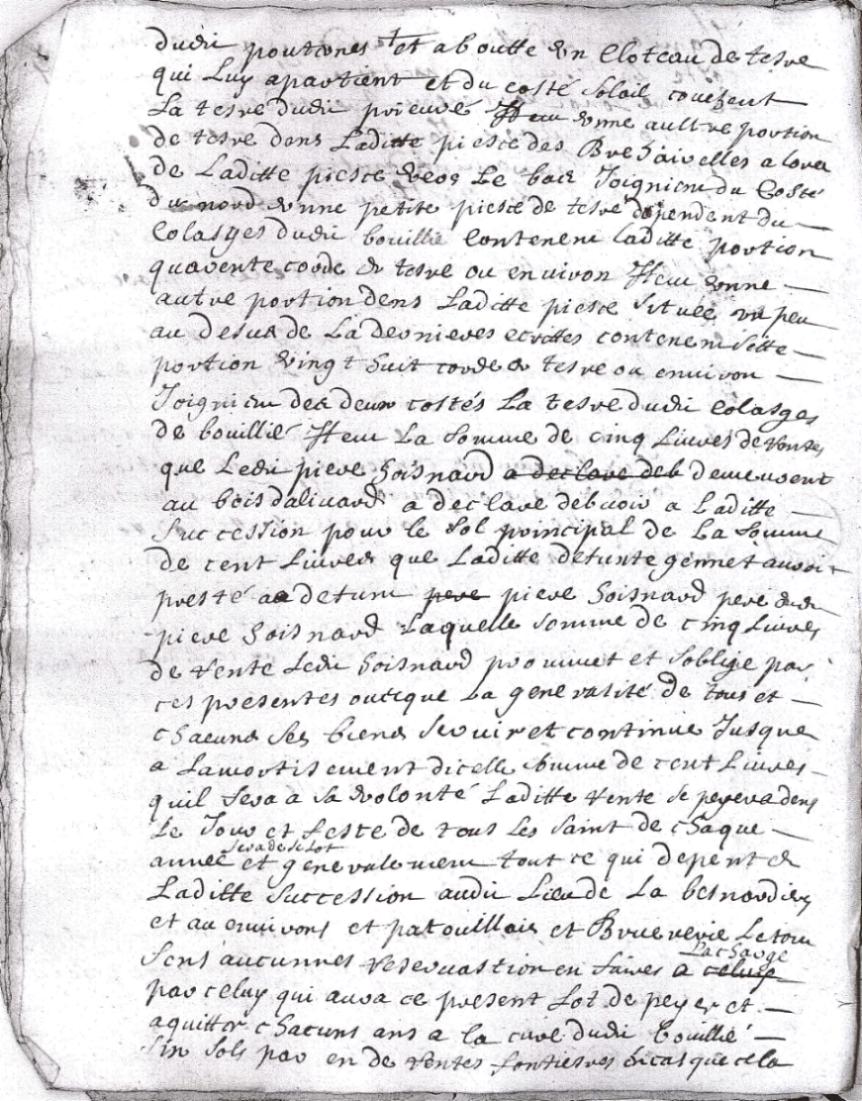 dudit portiones et aboutte un cloteau de tesre
qui luy apartient et du costé soleil couchent
La tesre dudit prieuré Item unne aultre portion
de tesre dens Laditte piesce des Brehaivelles a
de Laditte piesce vers Le bas Joignient du Costé
du nord unne petite piesce de tesre dependent du
Colasges dudit bouillié Contenent laditte portion
quarente corde de tesre ou environ Item unne
autre portion dens Laditte piesce située un peu
au desus de La dernieres ecrittes contenent ditte
portion vingt huit corde de tesre ou environ
Joignient des deux costés La tesre dudit Colasges
de bouillié Item La somme de cinq Livres de rentes
que Ledit piere hoisnard a declare deb demeurent
au bois dalinard a declare debvoir a Laditte
succession pour le sol principal de La somme
de cent Livres que Laditte defunte gennet avoit
presté au defunt pere piere hoisnard pere dudit
piere hoisnard Laquelle somme de cinq Livres
de rente Ledit hoisnard prommet et soblige par
ces presentes outique La generalité de tous et
chacuns ses biens servir et continue Jusque
a Lamortisement dicelle somme de cent Livres
quil fera a sa volonté Laditte rente se peyera dens
Le Jour et feste de tous Les saint de chaque
sera de se Lot
année et generalement tout ce qui depent de
Laditte succession audit Lieu de La besnardiere
et au environs et patouillais et Bruererie Le tout
sens aucunnes reservastion en faires a celuye
La charge
par celuy qui aura ce present Lot de peyer et
aquitter chacuns ans a la cure dudit bouillié
six sols par en de rentes fontiesres encas que cela